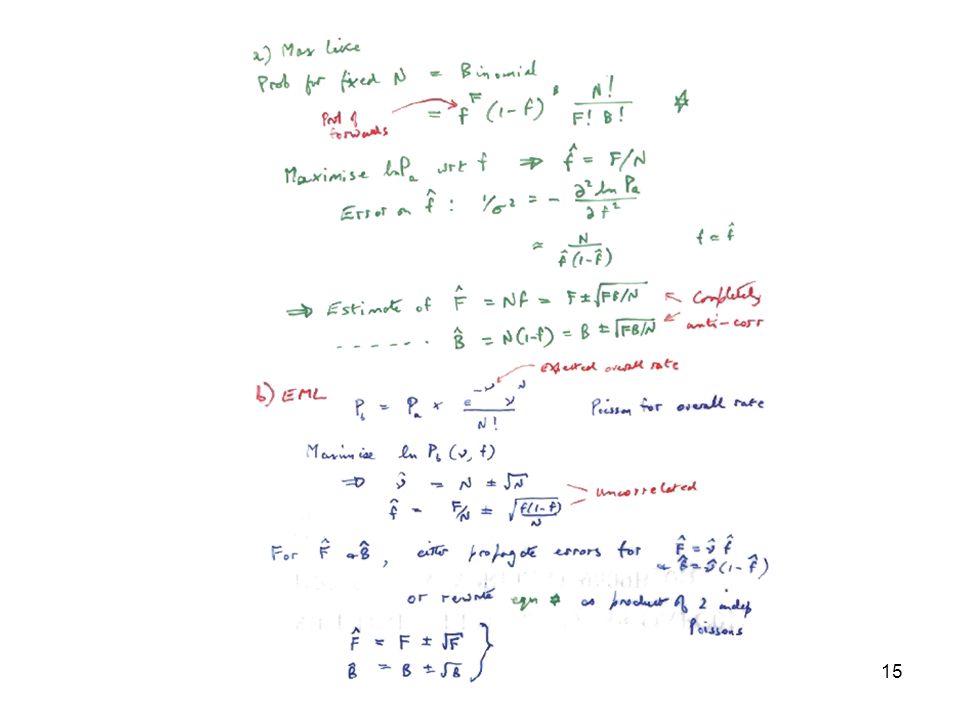 a) Max like
Prob for fixed N = Binomial
= f^F (1-f)^B N!/F! B! ☆
Prob of
forwards
Maximise ln Pa wrt f ⇒ f̂ = F/N
Error on f̂ : 1/σ² = - ∂² ln Pa/∂f²
≈ N/f̂(1-f̂) f ≃ f̂
⇒ Estimate of F̂ = Nf = F ± √FB/N ← Completely
------- B̂ = N(1-f) = B ± √FB/N ← anti-corr
Expected overall rate
b) EML
Pb = Pa × e^-ν ν^N/N! Poisson for overall rate
Maximise ln Pb (ν, f)
⇒ ν̂ = N ± √N
Uncorrelated
f̂ = F/N ± √f(1-f)/N
For F̂ & B̂, either propagate errors for F̂ = ν̂ f̂
& B̂ = ν̂(1-f̂)
or rewrite eqn ☆ as product of 2 indep
Poissons
F̂ = F ± √F }
B̂ = B ± √B
15